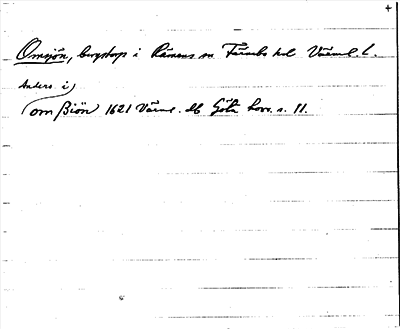 +
Omsjön, bergstorp i Rämens sn Färnebo hd Värml. l.
Anders i
om Siön 1621 Värml. db Göta hovr. n. 11.